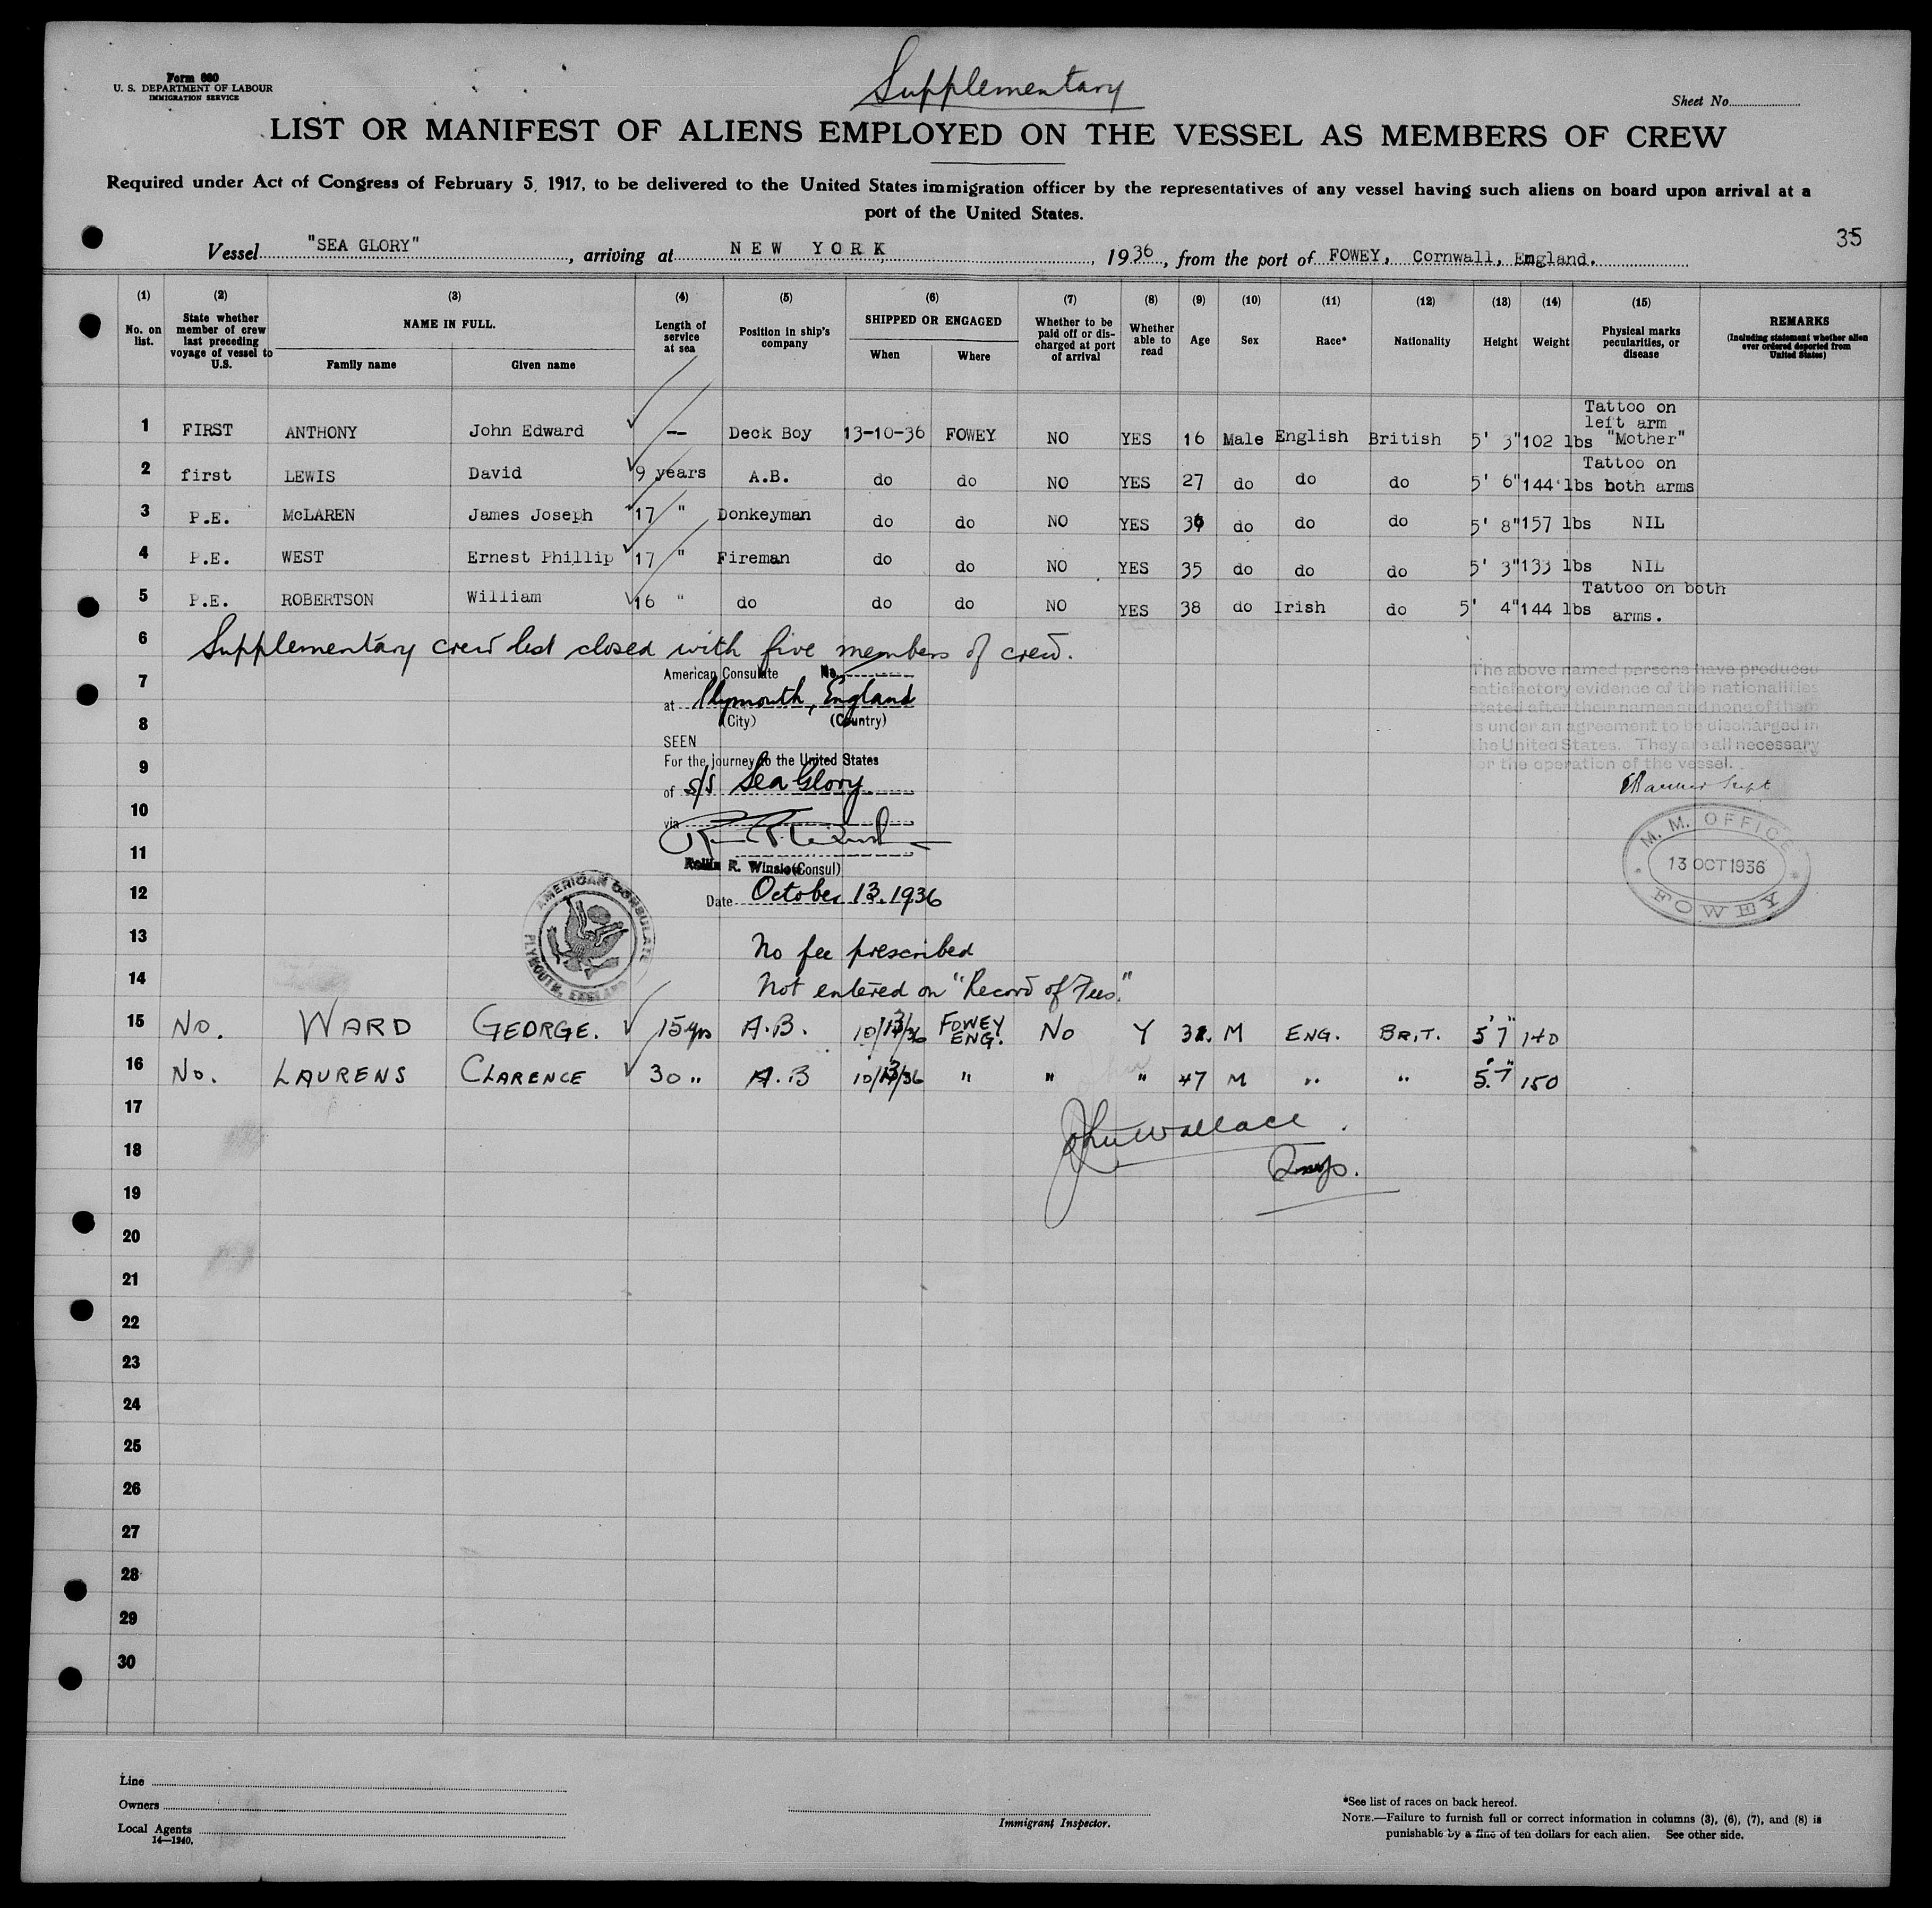 Supplementary
Form 680
U. S. DEPARTMENT OF LABOUR
IMMIGRATION SERVICE
Sheet No.
LIST OR MANIFEST OF ALIENS EMPLOYED ON THE VESSEL AS MEMBERS OF CREW
Required under Act of Congress of February 5, 1917, to be delivered to the United States immigration officer by the representatives of any vessel having such aliens on board upon arrival at a
port of the United States.
35
Vessel "SEA GLORY", arriving at NEW YORK, 1936, from the port of FOWEY, Cornwall, England.
(1) (2) (3) (4) (5) (6) (7) (8) (9) (10) (11) (12) (13) (14) (15)
No. on list. State whether member of crew last preceding voyage of vessel to U.S. NAME IN FULL. Family name Given name Length of service at sea Position in ship's company SHIPPED OR ENGAGED When Where Whether to be paid off or discharged at port of arrival Whether able to read Age Sex Race* Nationality Height Weight Physical marks pecularities, or disease REMARKS (Including statement whether alien ever ordered deported from United States)
1 FIRST ANTHONY John Edward — Deck Boy 13-10-36 FOWEY NO YES 16 Male English British 5' 3" 102 lbs Tattoo on left arm "Mother"
2 first LEWIS David 9 years A.B. do do NO YES 27 do do do 5' 6" 144 lbs Tattoo on both arms
3 P.E. McLAREN James Joseph 17 " Donkeyman do do NO YES do do do 5' 8" 157 lbs NIL
4 P.E. WEST Ernest Phillip 17 " Fireman do do NO YES 35 do do do 5' 3" 133 lbs NIL
5 P.E. ROBERTSON William 16 " do do do NO YES 38 do Irish do 5' 4" 144 lbs Tattoo on both arms.
6 Supplementary crew list closed with five members of crew.
7
8
9
10
11
12
13
14
American Consulate No.
at Plymouth, England
(City) (Country)
SEEN
For the journey to the United States
of s/s Sea Glory
via
R. Winslow (Consul)
Date October 13, 1936
AMERICAN CONSULATE PLYMOUTH, ENGLAND
No fee prescribed
Not entered on "Record of Fees."
The above named persons have produced
satisfactory evidence of the nationalities
stated after their names and none of them
is under an agreement to be discharged in
the United States. They are all necessary
for the operation of the vessel.
Supt
M. M. OFFICE
13 OCT 1936
FOWEY
15 No. WARD GEORGE. 15 yrs A.B. 10/13/36 FOWEY ENG. No Y M ENG. BRIT. 5' 7" 140
16 No. LAURENS CLARENCE 30 " A.B 10/13/36 " " " 47 M " " 5' 7" 150
John Wallace
17
18
19
20
21
22
23
24
25
26
27
28
29
30
Line
Owners
Local Agents
14—1240.
Immigrant Inspector.
*See list of races on back hereof.
NOTE.—Failure to furnish full or correct information in columns (3), (6), (7), and (8) is
punishable by a fine of ten dollars for each alien. See other side.